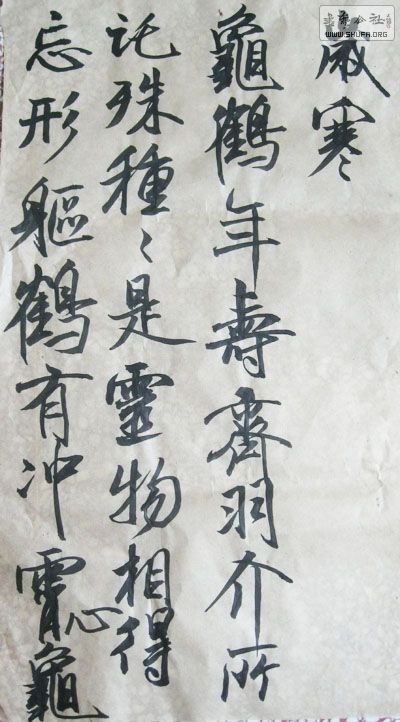 歲寒
龜鶴年壽齊羽介所
託殊種〻是靈物相得
忘形軀鶴有冲霄心龜
公社
WWW.SHUFA.ORG